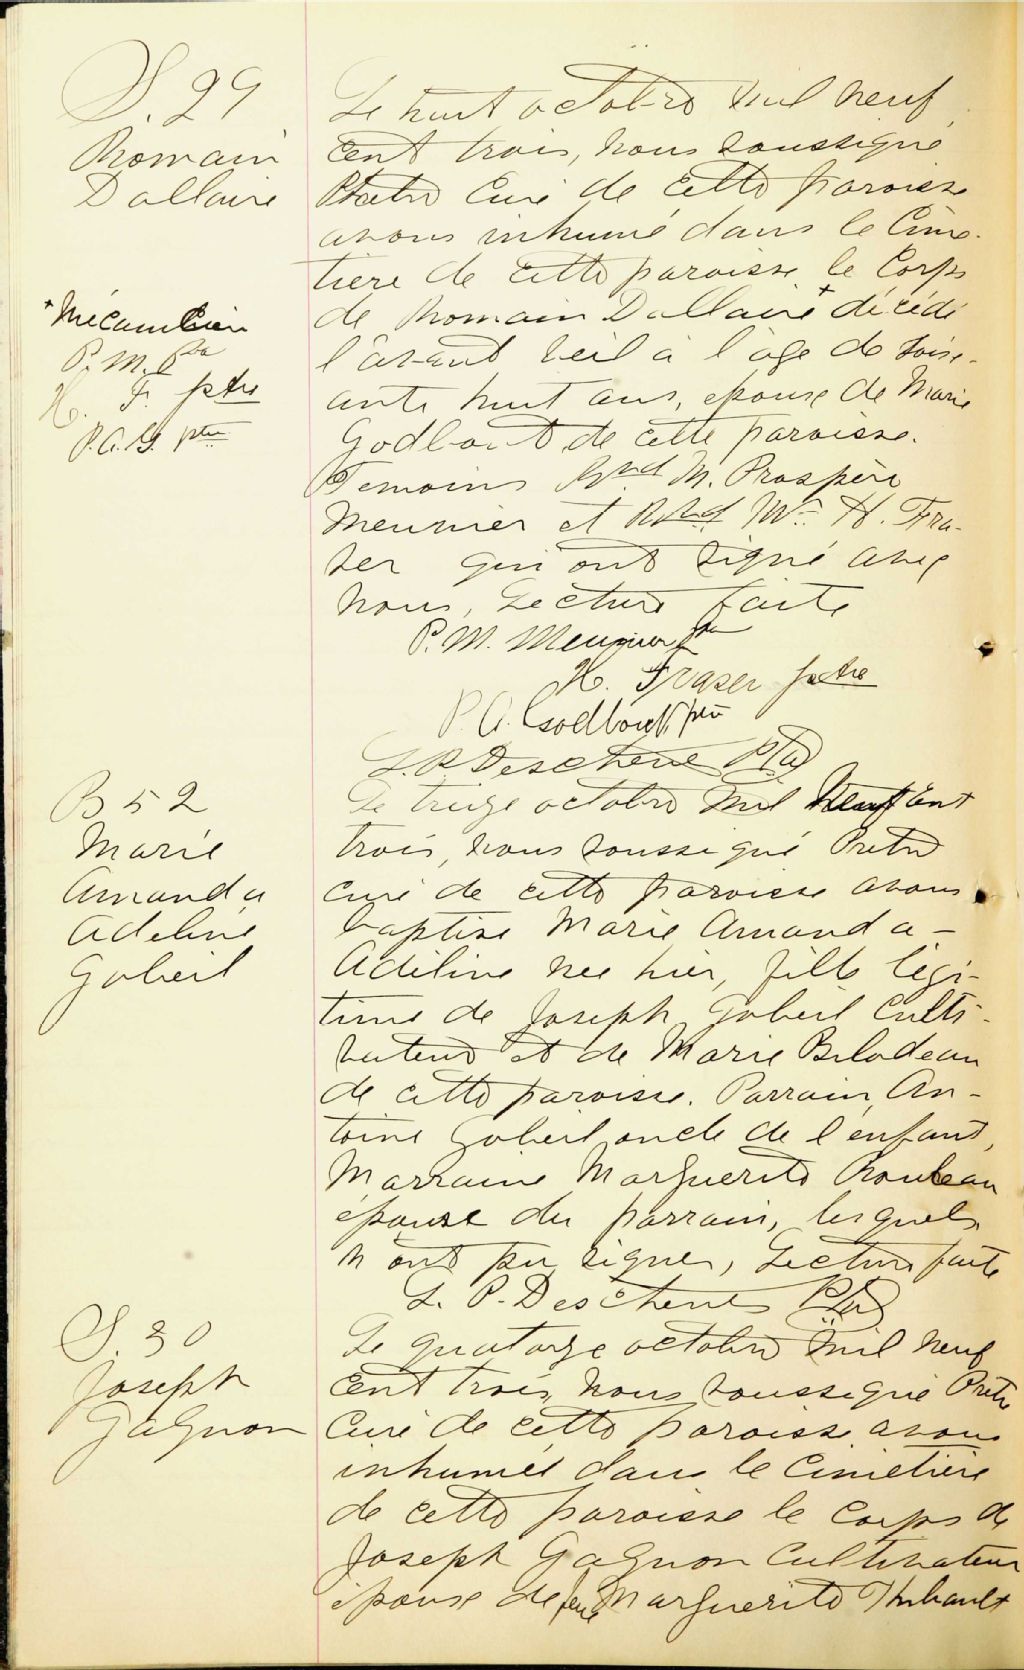 S. 29
Romain
Dallaire
+ Mécanicien
P. M. M. ptre
H. F. ptre
P. A. G. ptre
Le huit octobre mil neuf
cent trois, nous soussigné
Prêtre Curé de cette paroisse
avons inhumé dans le Cime-
tiere de cette paroisse le Corps
de Romain Dallaire + décédé
l'avant veil à l'age de soix-
ante huit ans, epoux de Marie
Godbout de cette paroisse.
Temoins Rvnd M. Prospère
Meunier et Rvnd Mr H. Fra-
ser qui ont signé avec
nous, Lecture faite
P. M. Meunier ptre
H. Fraser ptre
P. A. Godbout, ptre
L. P. Deschenes Ptre
B 52
Marie
Amanda
Adeline
Gobeil
Le treize octobre mil neuf cent
trois, nous soussigné Prêtre
curé de cette paroisse avons
baptise Marie Amanda-
Adeline nee hier, fille légi-
time de Joseph Gobeil Culti-
vateur et de Marie Bilodeau
de cette paroisse. Parrain, An-
toine Gobeil oncle de l'enfant,
Marraine Marguerite Rouleau
épouse du parrain, lesquels
n'ont pu signer, Lecture faite
L. P. Deschenes Ptre
S. 30
Joseph
Gagnon
Le quatorze octobre mil neuf
cent trois, nous soussigné Prêtre
Curé de cette paroisse avons
inhumé dans le Cimetière
de cette paroisse le corps de
Joseph Gagnon Cultivateur
époux de feue Marguerite Thibault